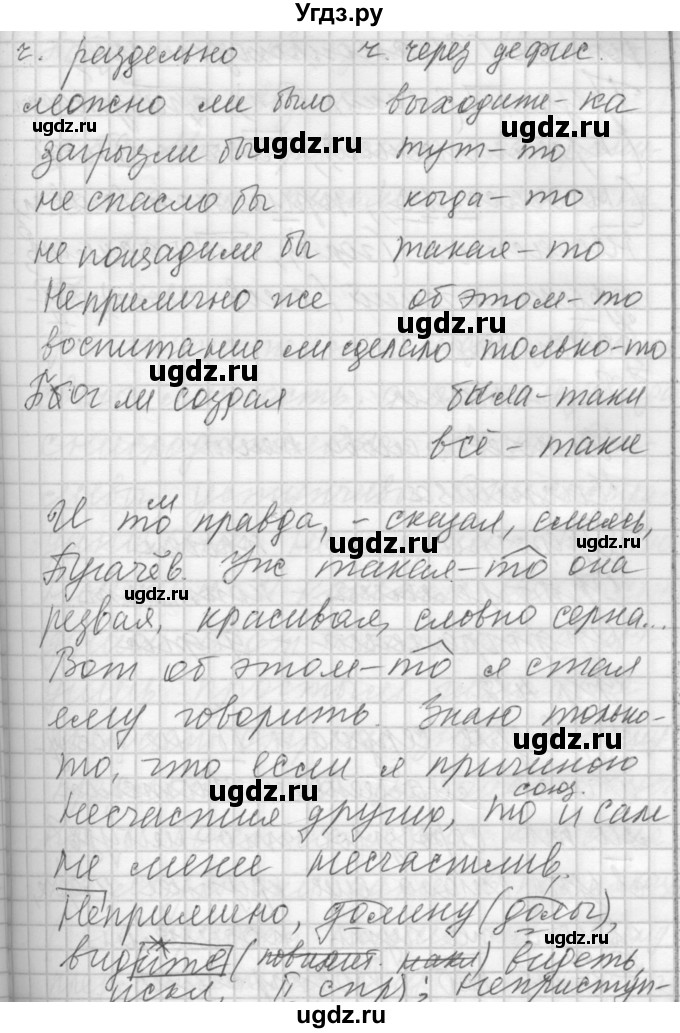 Угдз.ру
ч. раздельно ч. через дефис.
можно ли было выходите-ка
ugdz.ru
загрызли бы тут-то
ugdz.ru ugdz.ru
не спасло бы когда-то
не пощадили бы такая-то
Неприлично же об этом-то
ugdz.ru
воспитание ли сделало только-то
ugdz.ru
Бог ли создал была-таки
всё-таки
И то правда, - сказал, смеясь,
ugdz.ru ugdz.ru
Пугачёв. Уж такая-то она
ugdz.ru
резвая, красивая, словно серна...
Вот об этом-то я стал
ему говорить. Знаю только-
ugdz.ru
то, что если я причиною
союз.
ugdz.ru
несчастия других, то и сам
не менее несчастлив.
Неприлично, долину (долы),
ugdz.ru
видите (повелит. накл) видеть,
искл. II спр); неприступ-
ugdz.ru ugdz.ru